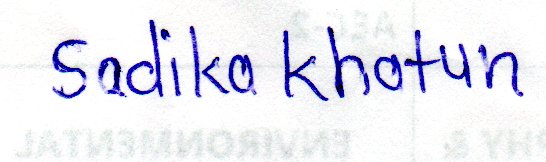 Sadika khatun